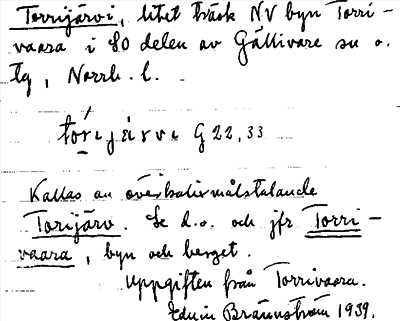 Torrijärvi, litet träsk NV byn Torri-
vaara i SO delen av Gällivare sn o.
tg, Norrb. l.
tori̮järve G 22,33
Kallas av överkalixmålstalande
Torijärv. Se d.o. och jfr Torri-
vaara, byn och berget.
Uppgiften från Torrivaara.
Edvin Brännström 1939.